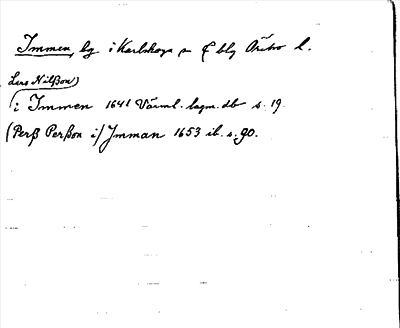 Immen, by i Karlskoga s n f blg Örebro l.
Lars Nilßon)
i Immen 1641 Värml. lagm. db s. 19.
(Perß Perßon i) Imman 1653 ib. s. 90.